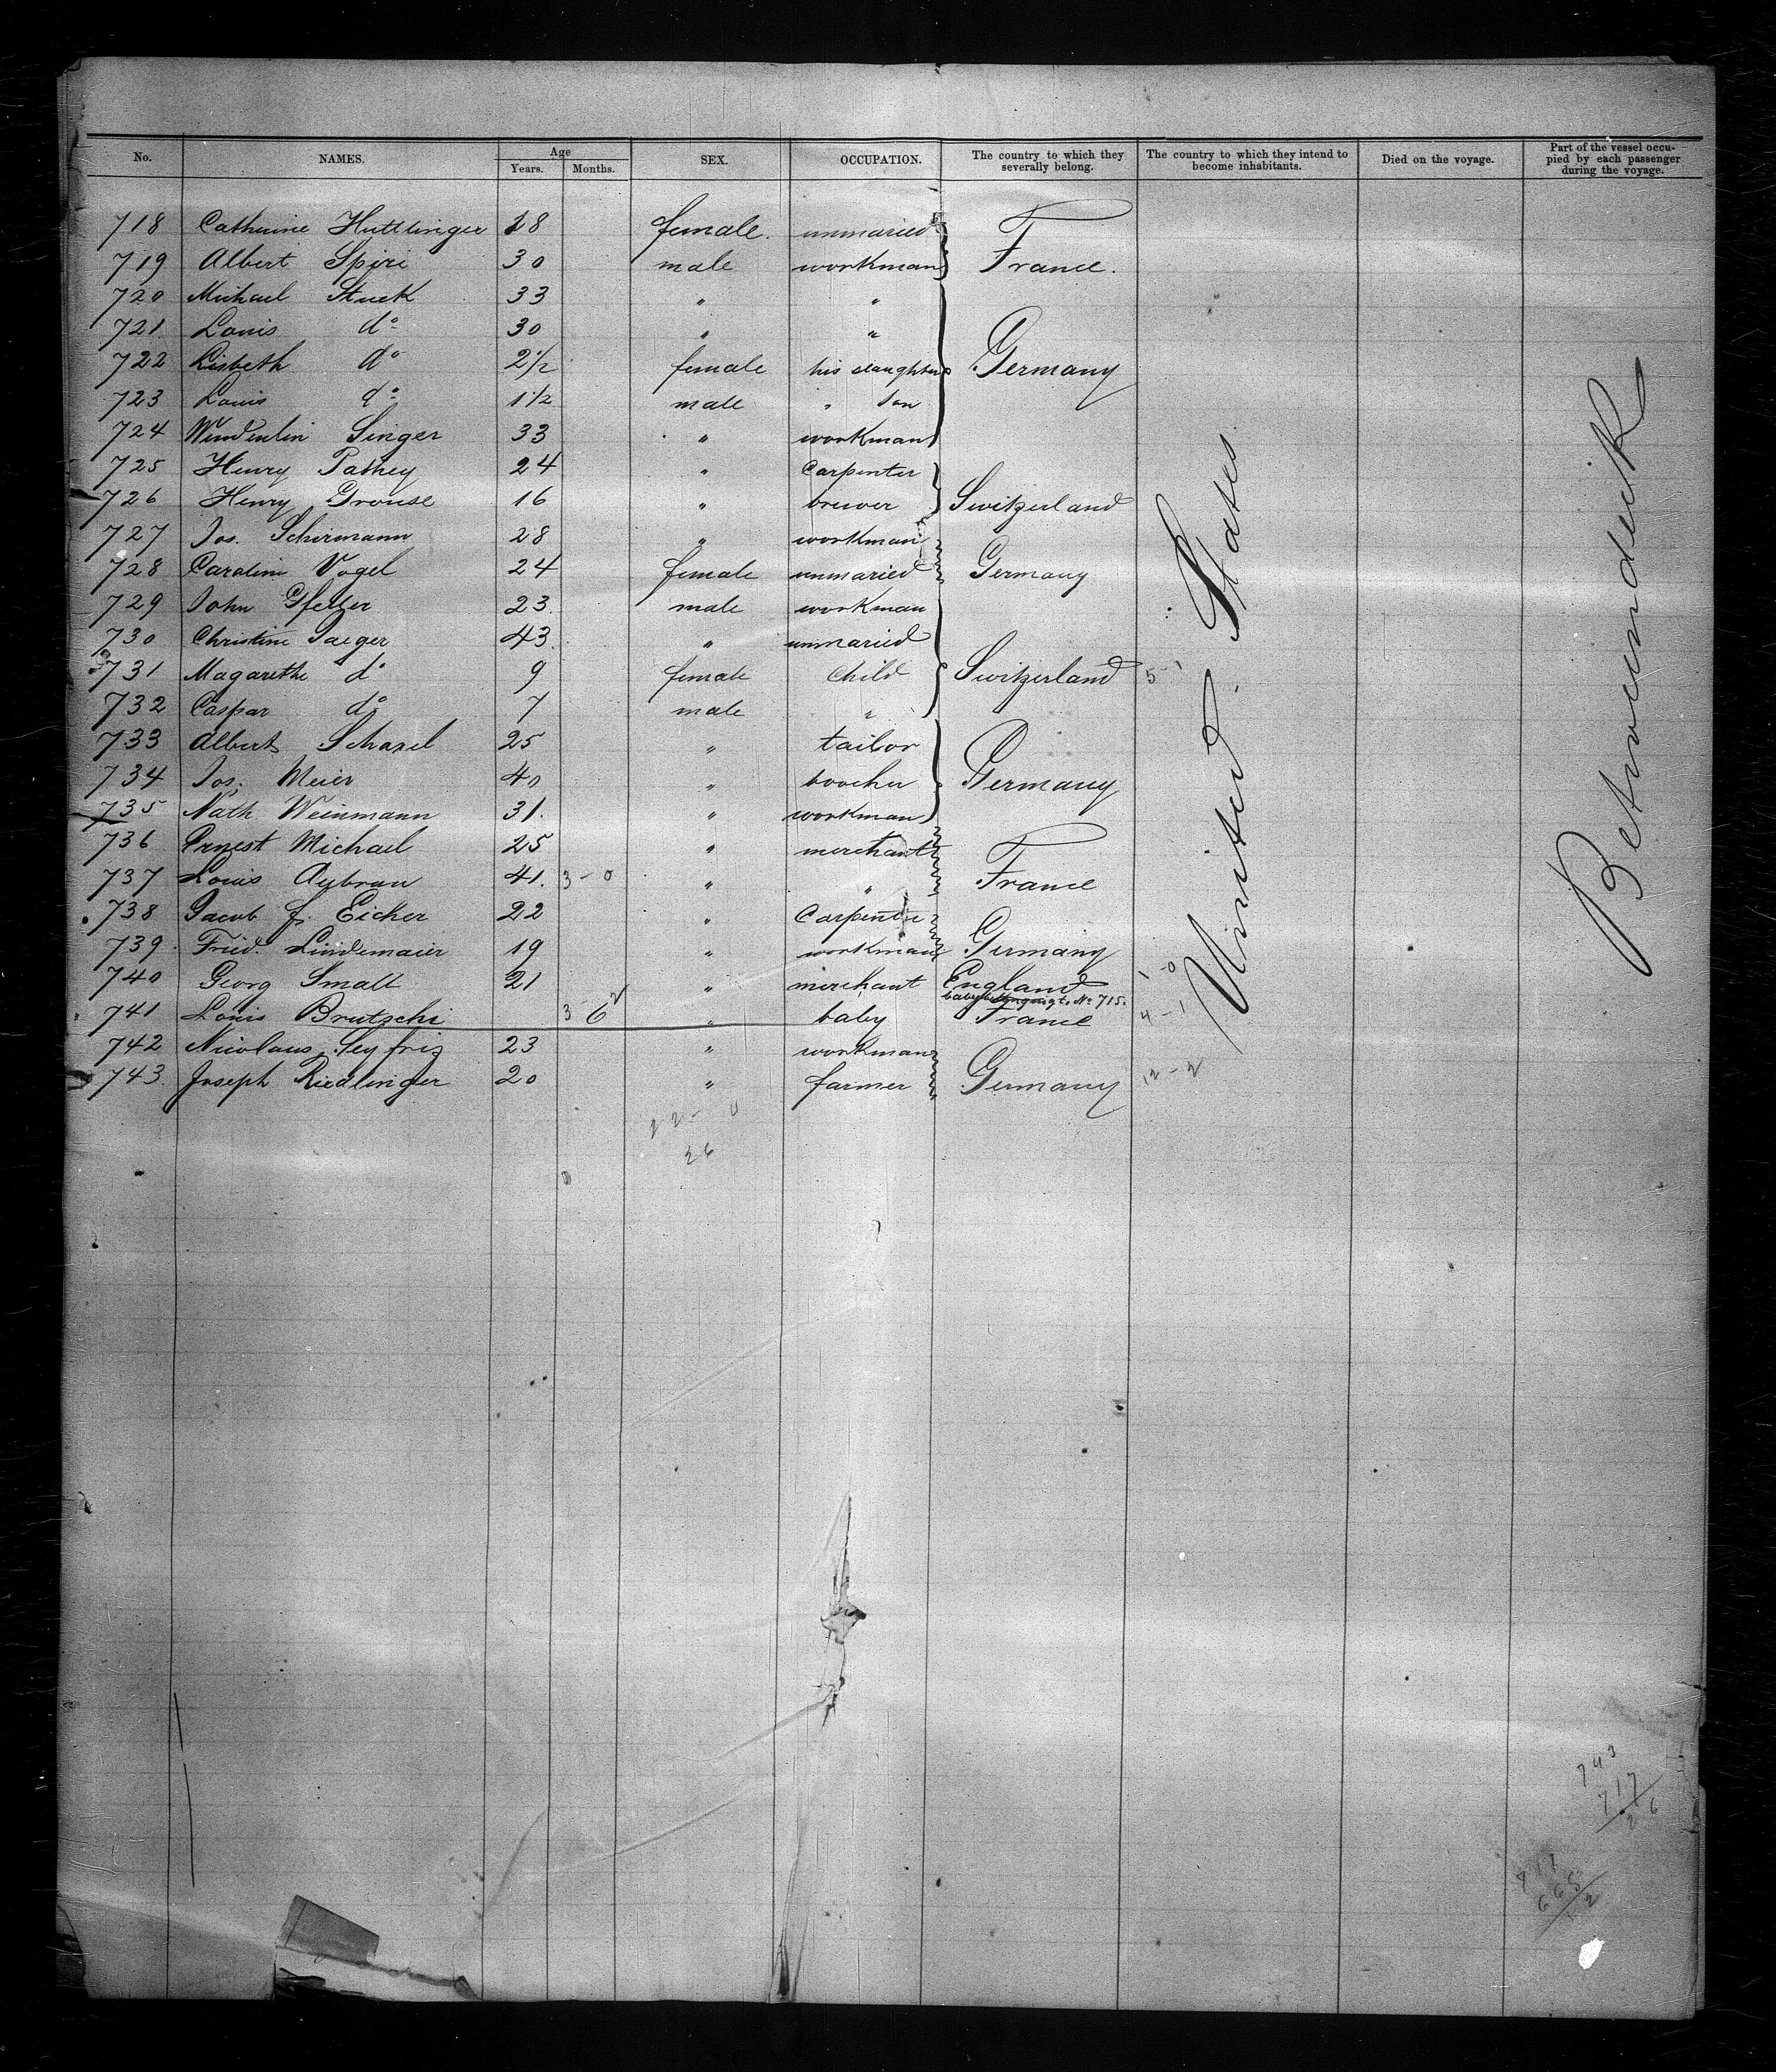 No. NAMES. Age Years. Months. SEX. OCCUPATION. The country to which they severally belong. The country to which they intend to become inhabitants. Died on the voyage. Part of the vessel occupied by each passenger during the voyage.
718 Catherine Huttlinger 28 female. unmaried
719 Albert Spiri 30 male workman France.
720 Michael Stuck 33 " "
721. Louis do 30 " "
722 Lisbeth do 2 1/2 female his daughter Germany
723 Louis do 1 1/2 male " son
724 Wendenlin Singer 33 " workman
725 Henry Pathey 24 " Carpenter
726 Henry Grouse 16 " brewer Switzerland
727 Jos. Schirmann 28 " workman
728 Caroline Vogel 24 female unmaried Germany
729 John Gfeller 23 male workman
730 Christine Jaeger 43 " unmaried
731 Magarethe do 9 female Child Switzerland
732 Caspar do 7 male "
733 Albert Schasel 25 " tailor
734 Jos. Meier 40 " boocher Germany
735 Nath. Weinmann 31. " workman
736 Ernest Michael 25 " merchant
737 Louis Aybran 41. 3-0 " " France
738 Jacob f. Eicher 22 " Carpenter
739 Fried. Lindemaier 19 " workman Germany
740 Georg Small 21 " merchant England 1-0
baby belonging to No 715.
741 Louis Brutschi 3 6 " baby France 4-1
742 Nicolaus Seyfriz 23 " workman
743 Joseph Riedlinger 20 " farmer Germany 12-2
United States
Betweendeck
22-0
26
743
717
26
717
665